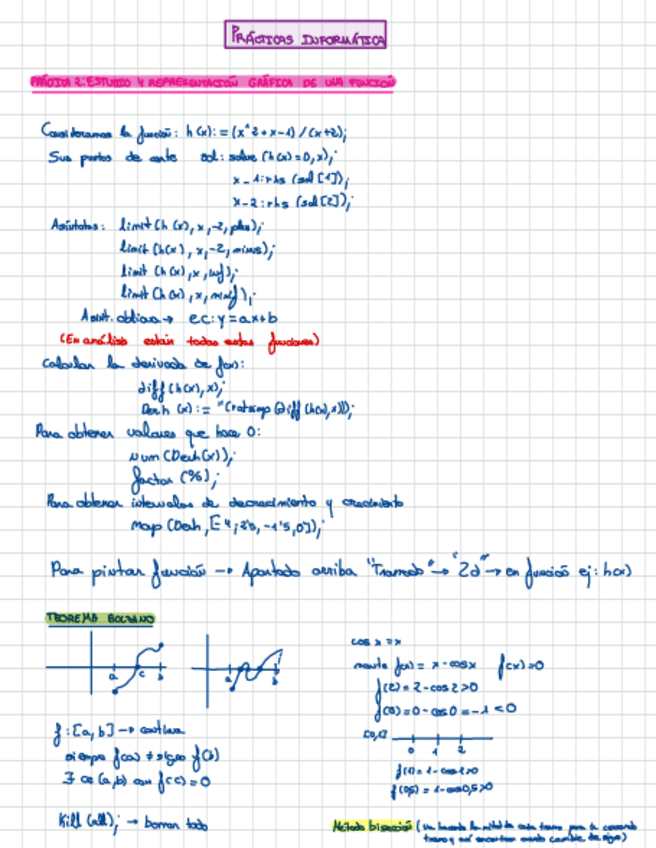 PRÁCTICAS INFORMÁTICA
PRÁCTICA 2: ESTUDIO Y REPRESENTACIÓN GRÁFICA DE UNA FUNCIÓN
Consideramos la función: h(x):=(x^2+x-1)/(x+2);
Sus puntos de corte sol: solve(h(x)=0,x);
x-1:rhs(sol[1]);
x-2:rhs(sol[2]);
Asíntotas: limit(h(x),x,-2,plus);
limit(h(x),x,-2,minus);
limit(h(x),x,inf);
limit(h(x),x,minf);
Asínt. oblicua → ec: y=ax+b
(En análisis están todas estas funciones)
Calcular la derivada de f(x):
diff(h(x),x);
Derh(x):= "(ratsimp(diff(h(x),x)));
Para obtener valores que hace 0:
num(Derh(x));
factor(%);
Para obtener intervalos de decrecimiento y crecimiento
map(Derh,[-4,
Para pintar función → Apartado arriba "Tramado" → "2d" → en función ej: h(x)
TEOREMA BOLZANO
a c b
a b
f:[a,b] → continua
siempre f(a) ≠ signo f(b)
∃ c∈(a,b) con f(c)=0
Kill(all); → borran todo
cos x = x
f(x)= x-cosx f(x)=0
f(2)=2-cos2>0
f(0)=0-cos0=-1<0
[0,1]
0 1 2
f(1)=1-cos1>0
Método bisección (Va haciendo la mitad de cada tramo para ir cerrando
tramo y así encontrar cuando cambia de signo)